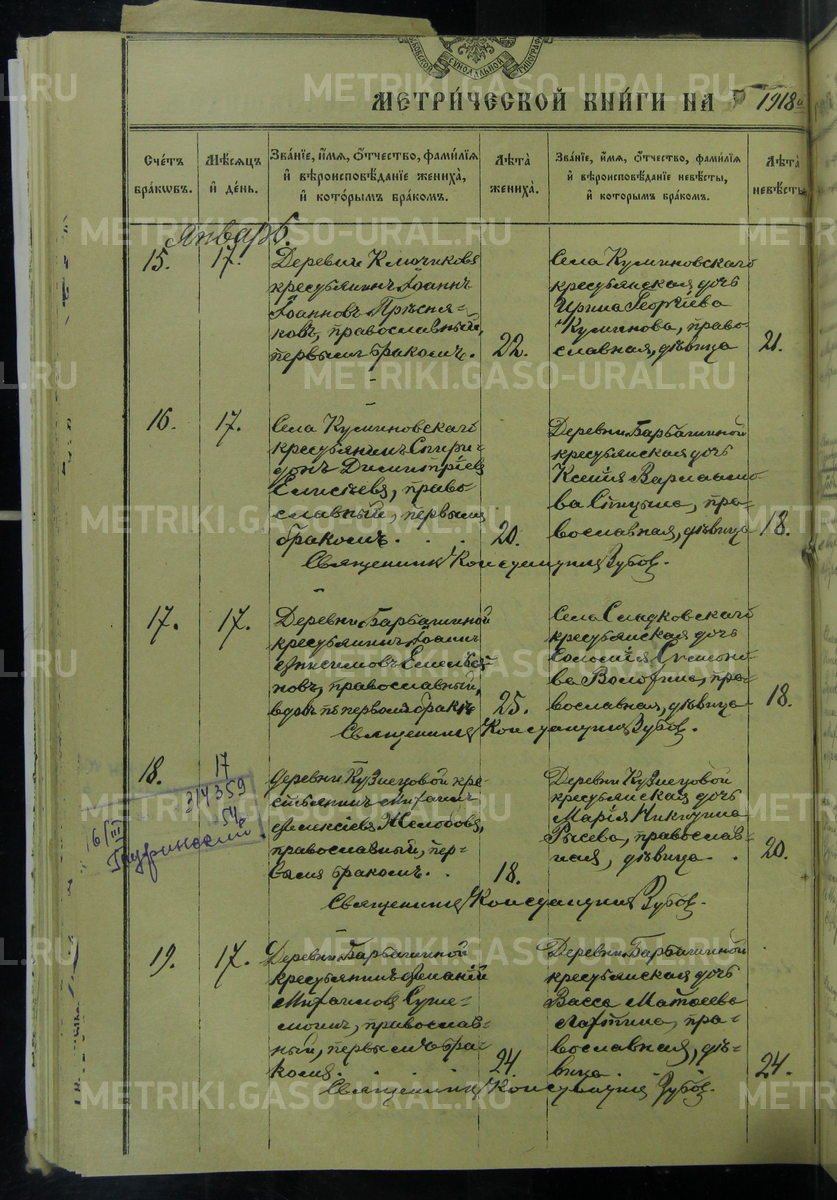 МЕТРИЧЕСКОЙ КНИГИ НА 1918
Счетъ браковъ.
Мѣсяцъ и день.
Званіе, имя, отчество, фамилія и вѣроисповѣданіе жениха, и которымъ бракомъ.
Лѣта жениха.
Званіе, имя, отчество, фамилія и вѣроисповѣданіе невѣсты, и которымъ бракомъ.
Лѣта невѣсты
Январь.
15. 17.
Деревни Ключиковой
крестьянинъ Іоаннъ
Іоанновъ Прѣсня=
ковъ, православный,
первымъ бракомъ.
22.
Села Куминовскаго
крестьянская дочь
Ирина Георгіева
Куминова, право-
славная, дѣвица
21.
16. 17.
Села Куминовскаго
крестьянинъ Спири-
донъ Димитріевъ
Елисѣевъ, право-
славный, первымъ
бракомъ.
20.
Деревни Барбашиной
крестьянская дочь
Ксенія Варлаамо
ва, пра-
вославная, дѣвица
18.
Священникъ Константинъ Зубовъ.
17. 17.
Деревни Барбашиной
крестьянинъ Іоаннъ
Анисимовъ Емелья-
новъ, православный,
вдовъ по первомъ бракѣ
25.
Села Сладковскаго
крестьянская дочь
Симеоно
ва, пра-
вославная, дѣвица
18.
Священникъ Константинъ Зубовъ.
18. 17
Деревни Кузнецовой кре-
стьянинъ Михаилъ
Алексіевъ Желобовъ,
православный, пер-
вымъ бракомъ.
18.
Деревни Кузнецовой
крестьянская дочь
Марія Никитина
Рысева, православ-
ная, дѣвица.
20.
314359
54
16/III
Священникъ Константинъ Зубовъ.
19. 17.
Деревни Барбашиной
крестьянинъ Ананій
Михаиловъ
православ=
ный, первымъ бра-
комъ.
24.
Деревни Барбашиной
крестьянская дочь
Васса Матѳеева
Лаптина, пра-
вославная, дѣ-
вица.
24.
Священникъ Константинъ Зубовъ.
METRIKI.GASO-URAL.RU